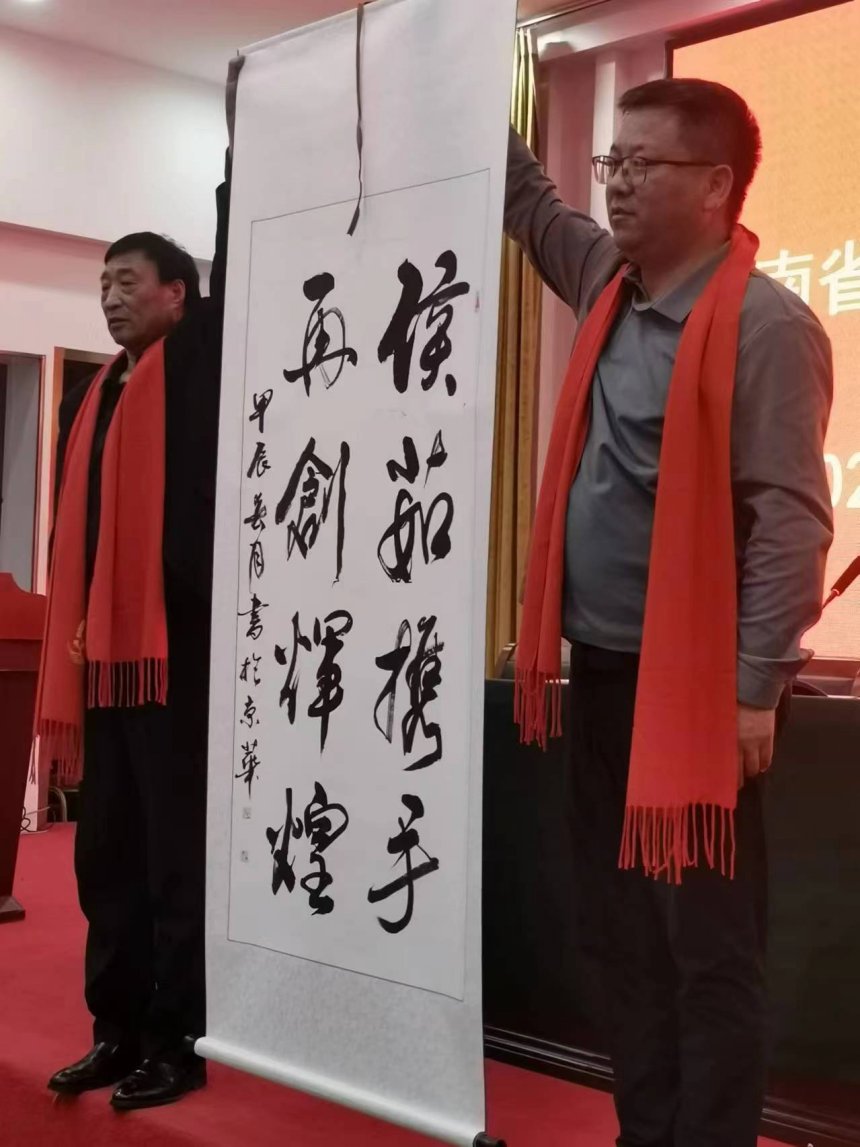 侯茹携手
再創輝煌
甲辰春月書於京華
南省
02